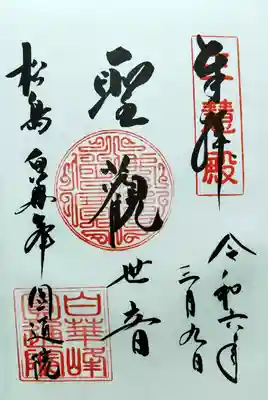 奉拝
三慧殿
令和六年
三月九日
聖觀世音
松島 白華峰 圓通院
白華峰
圓通院